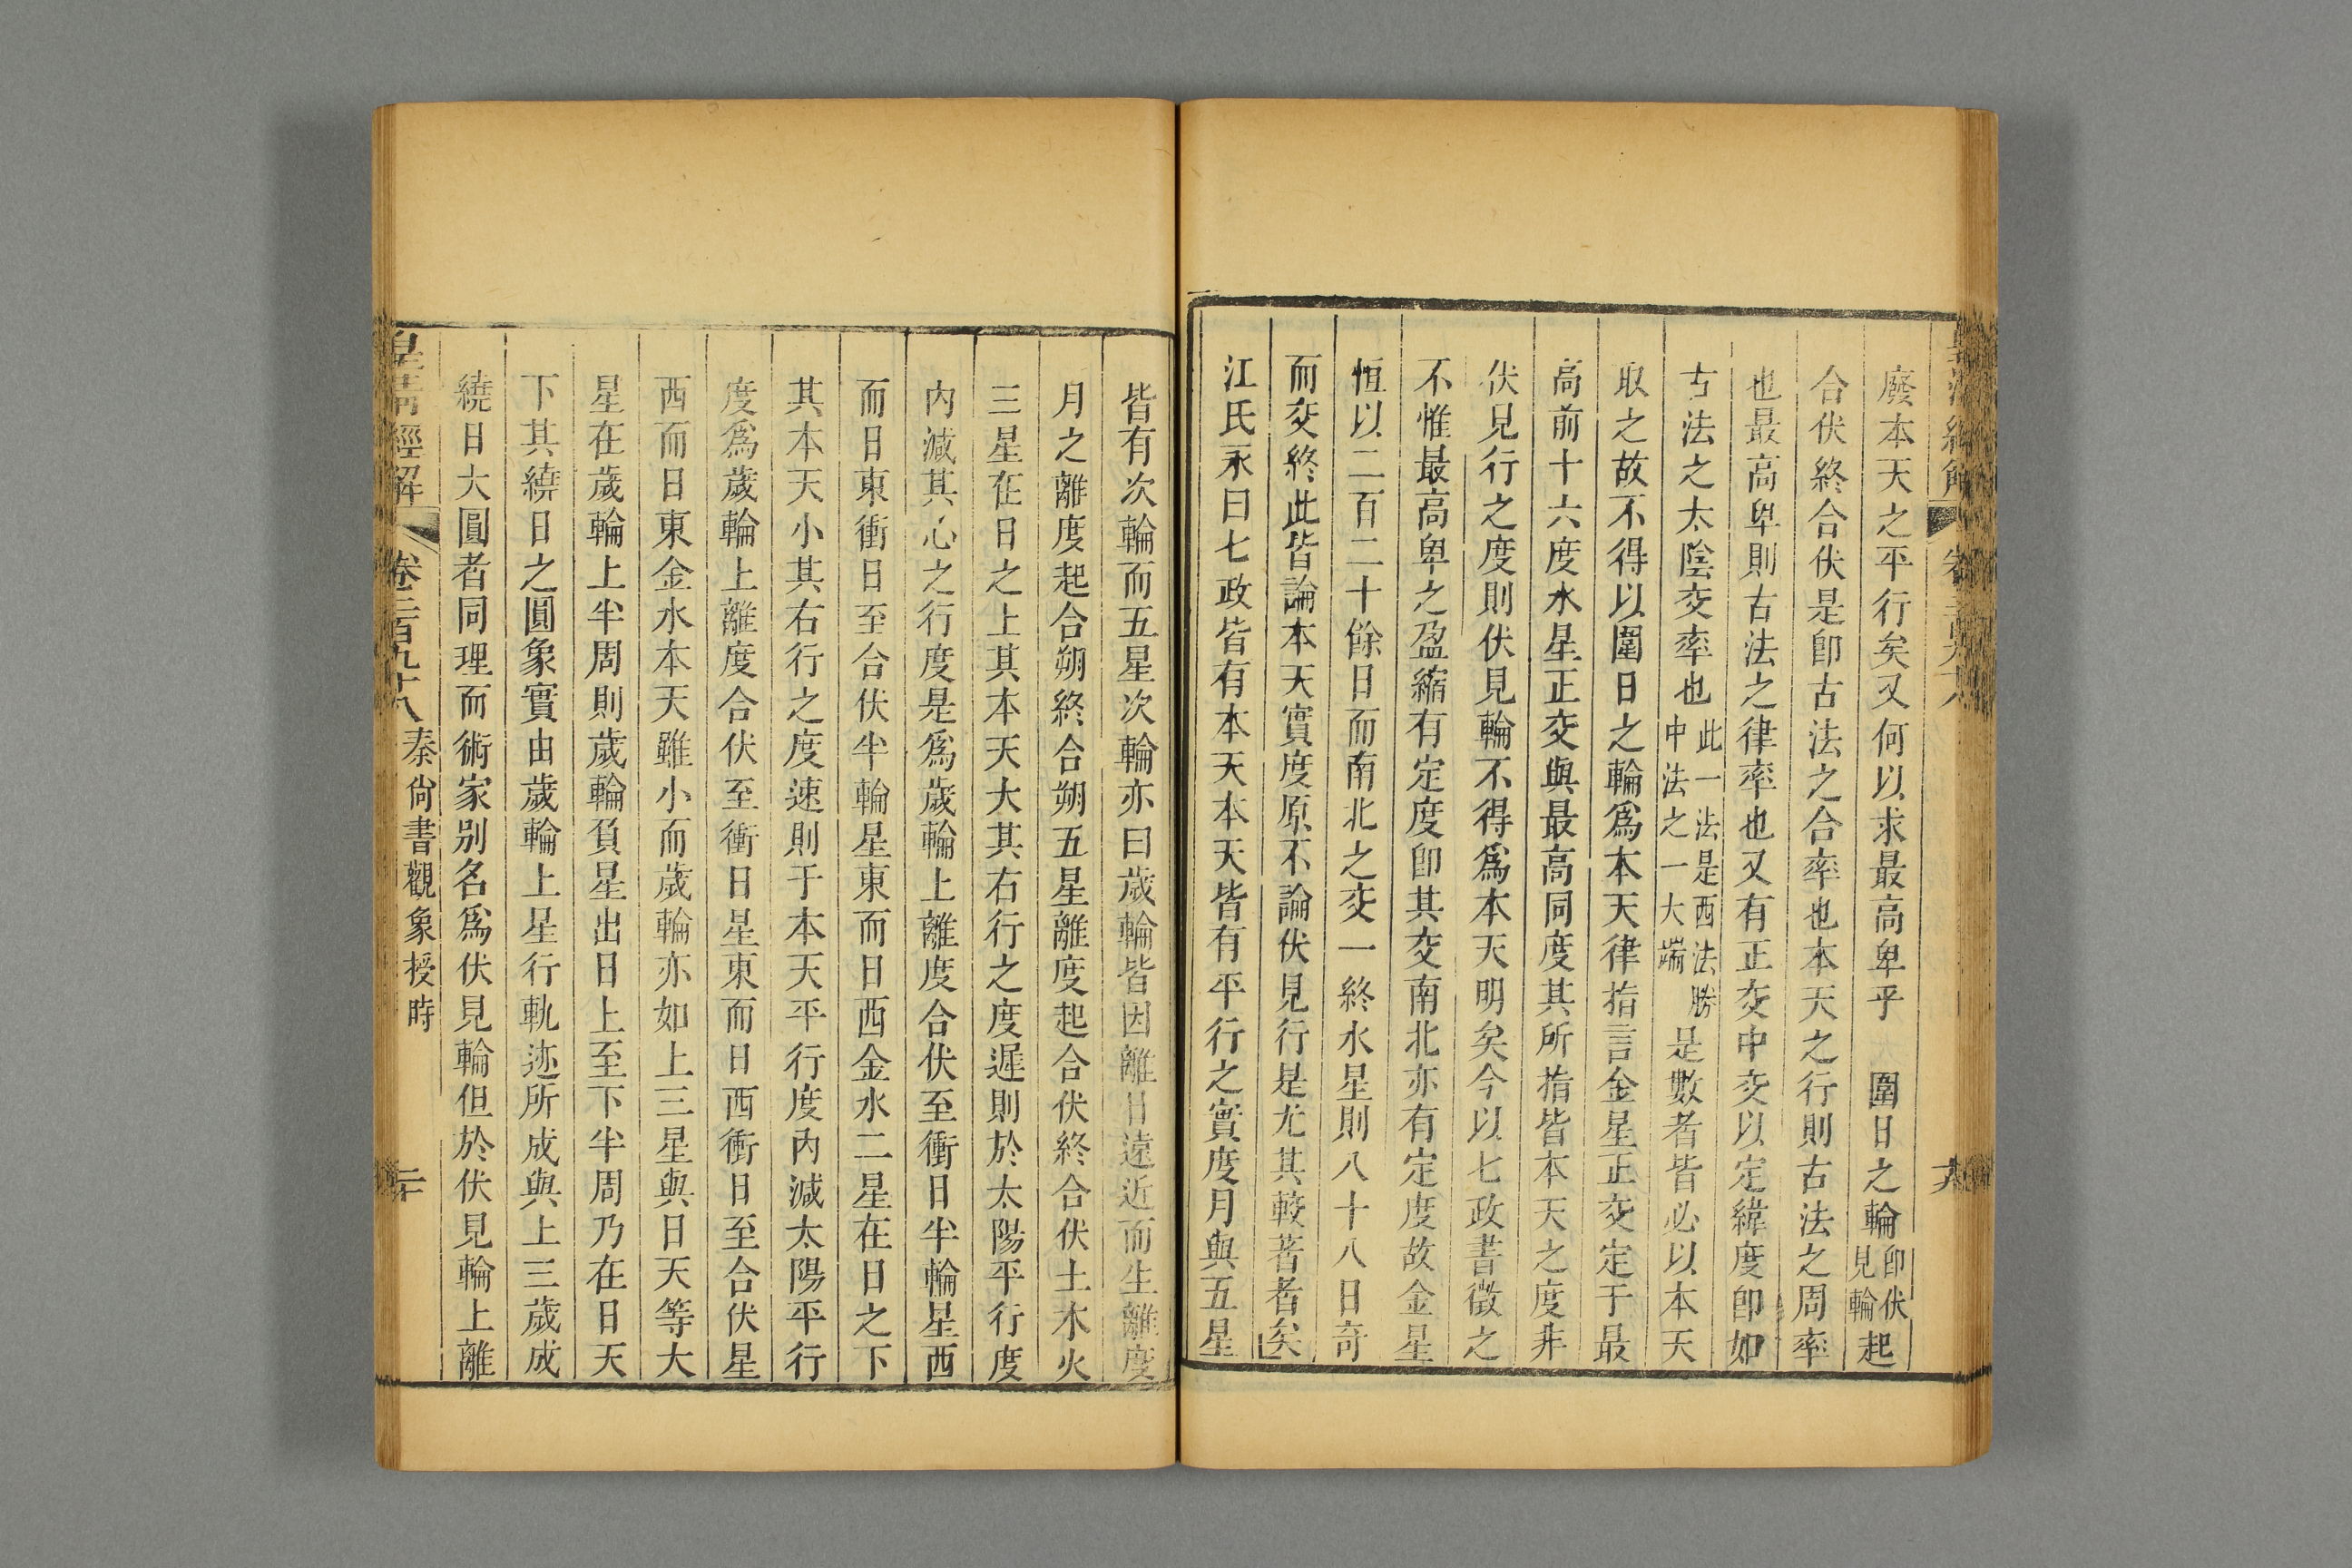 皇清經解
卷二百九十八
十九
廢本天之平行矣又何以求最高卑乎　圍日之輪卽伏見輪起
合伏終合伏是卽古法之合率也本天之行則古法之周率
也最高卑則古法之律率也又有正交中交以定緯度卽如
古法之太陰交率也此一法是西法勝中法之一大端是數者皆必以本天
取之故不得以圍日之輪爲本天律指言金星正交定于最
高前十六度水星正交與最高同度其所指皆本天之度非
伏見行之度則伏見輪不得爲本天明矣今以七政書徵之
不惟最高卑之盈縮有定度卽其交南北亦有定度故金星
恒以二百二十餘日而南北之交一終水星則八十八日奇
而交終此皆論本天實度原不論伏見行是尤其較著者矣
江氏永曰七政皆有本天本天皆有平行之實度月與五星
皆有次輪而五星次輪亦曰歲輪皆因離日遠近而生離度
月之離度起合朔終合朔五星離度起合伏終合伏土木火
三星在日之上其本天大其右行之度遲則於太陽平行度
內減其心之行度是爲歲輪上離度合伏至衝日半輪星西
而日東衝日至合伏半輪星東而日西金水二星在日之下
其本天小其右行之度速則于本天平行度內減太陽平行
度爲歲輪上離度合伏至衝日星東而日西衝日至合伏星
西而日東金水本天雖小而歲輪亦如上三星與日天等大
星在歲輪上半周則歲輪負星出日上至下半周乃在日天
下其繞日之圓象實由歲輪上星行軌迹所成與上三歲成
繞日大圓者同理而術家別名爲伏見輪但於伏見輪上離
皇清經解
卷二百九十八
秦尙書觀象授時
二十